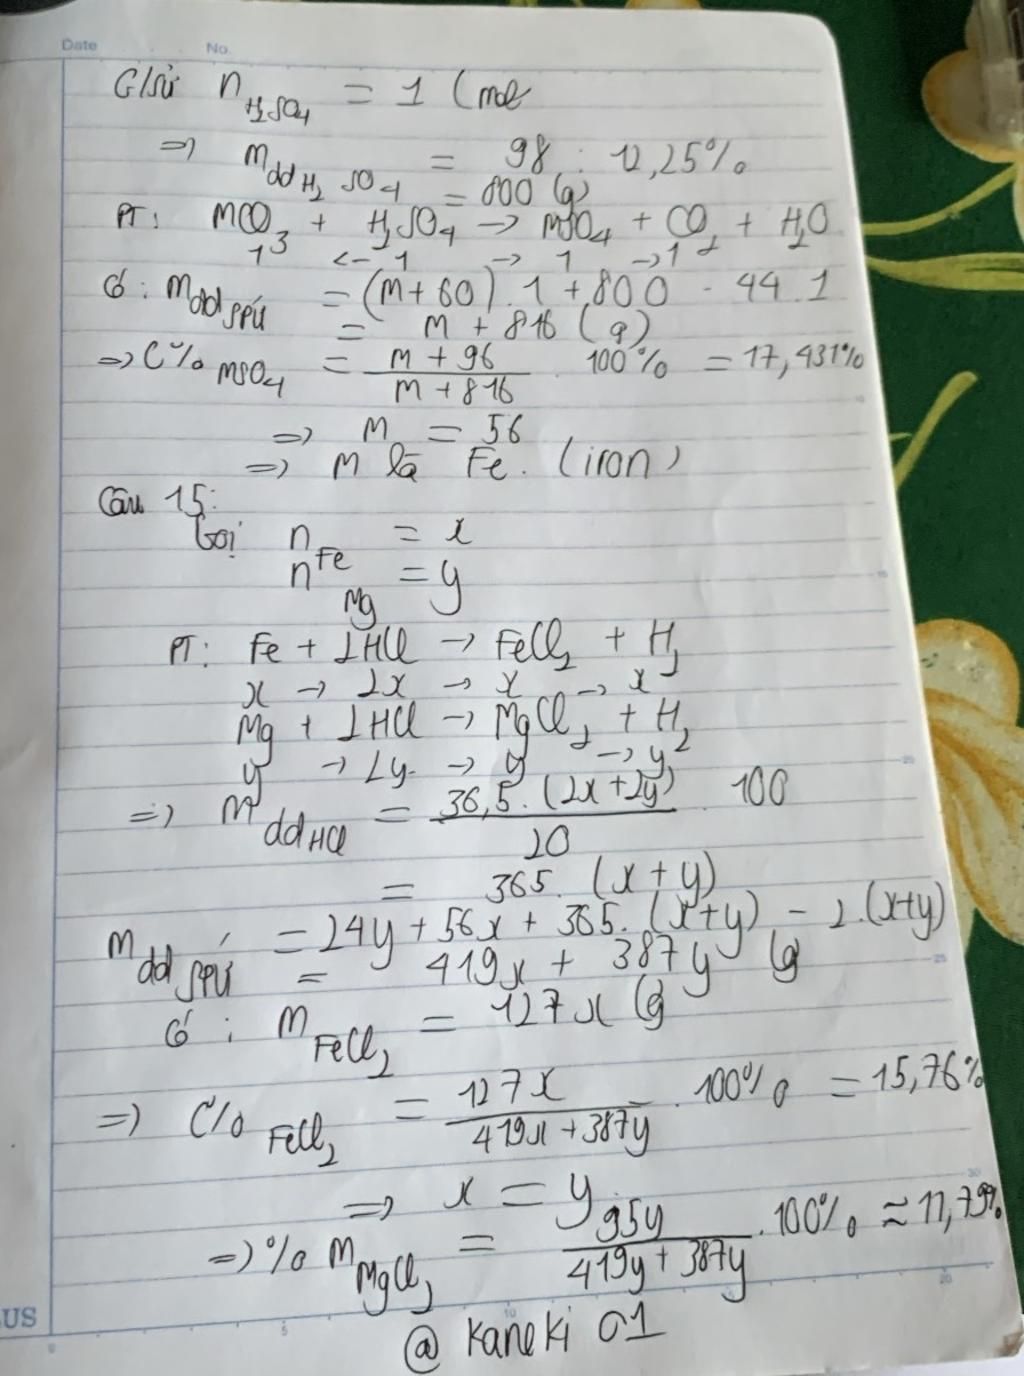 Date No.
G/sử n H2SO4 = 1 (mol
=> m dd H2SO4 = 98 : 12,25%
= 800 (g)
PT: MCO3 + H2SO4 -> MSO4 + CO2 + H2O
1 <- 1 -> 1 -> 1
Có: m dd spứ = (M+60).1 + 800 - 44.1
= M + 816 (g)
=> C% MSO4 = (M + 96)/(M + 816) . 100% = 17,431%
=> M = 56
=> M là Fe. (iron)
Câu 15:
Gọi n Fe = x
n Mg = y
PT: Fe + 2HCl -> FeCl2 + H2
x -> 2x -> x -> x
Mg + 2HCl -> MgCl2 + H2
y -> 2y -> y -> y
=> m dd HCl = 36,5.(2x+2y)/20 . 100
= 365.(x+y)
m dd spứ = 24y + 56x + 365.(x+y) - 2.(x+y)
= 419x + 387y (g)
Có: m FeCl2 = 127x (g)
=> C% FeCl2 = 127x/(419x+387y) . 100% = 15,76%
=> x = y
=> % m MgCl2 = 95y/(419y+387y) . 100% ≈ 11,79%
@ Kaneki 01
US